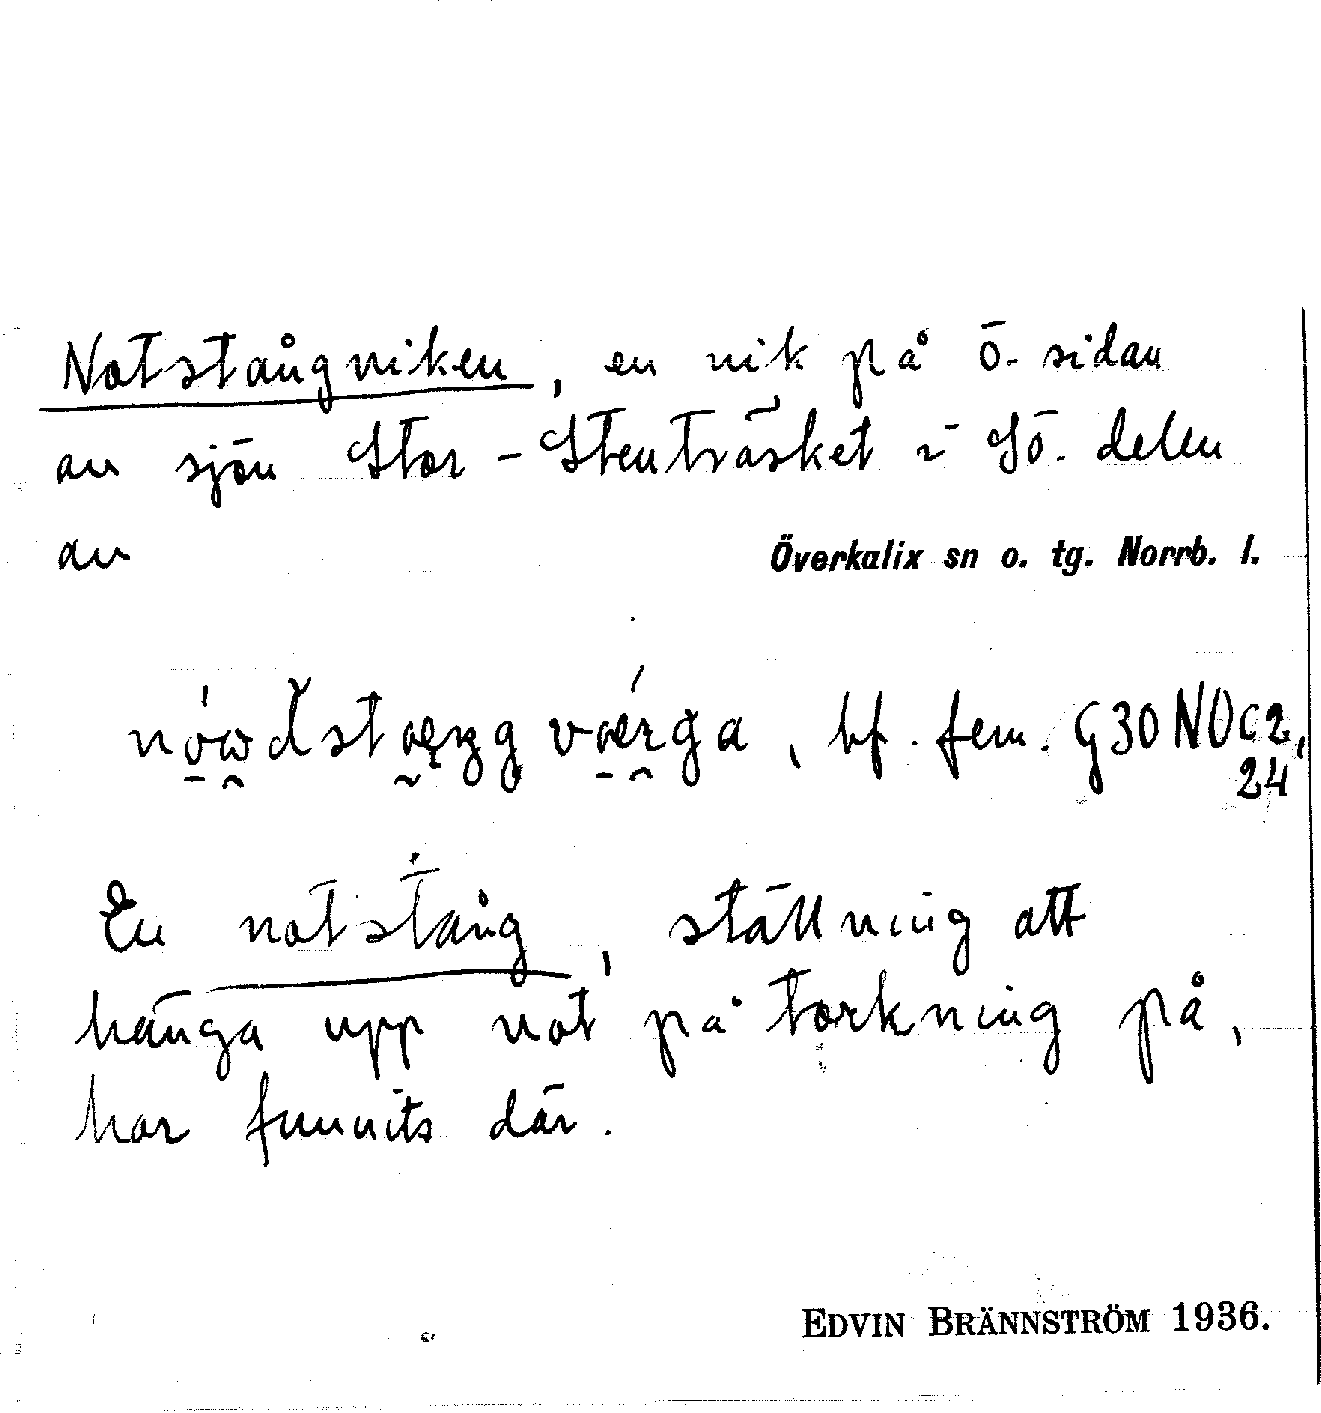 Notstångviken, en vik på ö. sidan
av sjön Stor-Stenträsket i Sö. delen
av Överkalix sn o. tg. Norrb. l.
bf. fem. G30 NO c2,
24
En notstång, ställning att
hänga upp not på torkning på,
har funnits där.
EDVIN BRÄNNSTRÖM 1936.